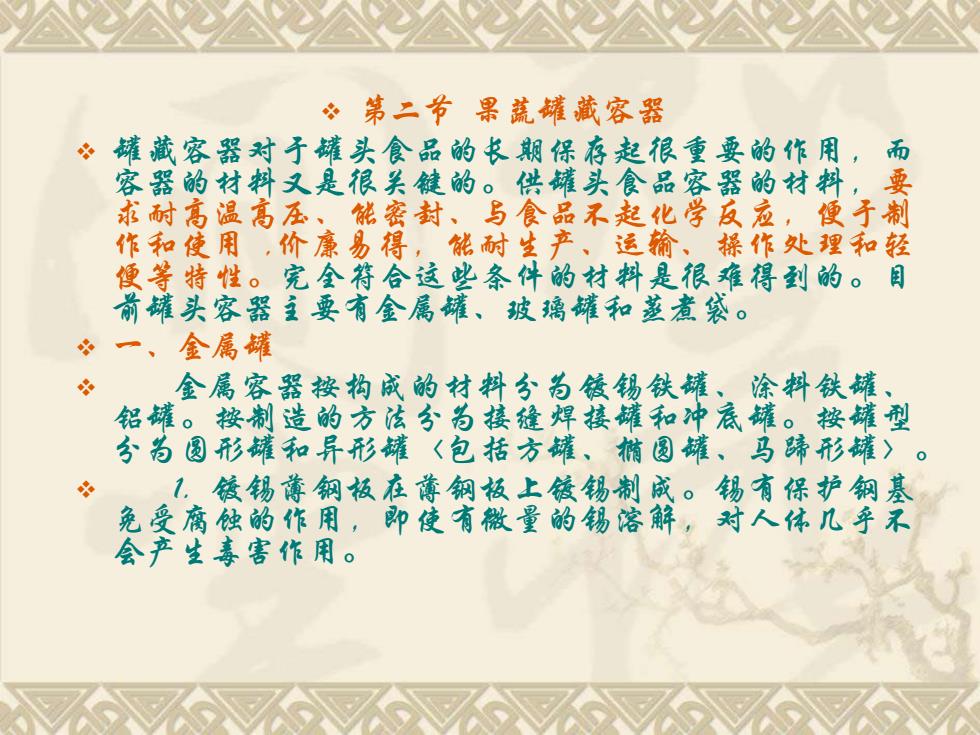 ❖ 第二节 果蔬罐藏容器
❖ 罐藏容器对于罐头食品的长期保存起很重要的作用，而
容器的材料又是很关键的。供罐头食品容器的材料，要
求耐高温高压、能密封、与食品不起化学反应，便于制
作和使用,价廉易得，能耐生产、运输、操作处理和轻
便等特性。完全符合这些条件的材料是很难得到的。目
前罐头容器主要有金属罐、玻璃罐和蒸煮袋。
❖ 一、金属罐
❖ 金属容器按构成的材料分为镀锡铁罐、涂料铁罐、
铝罐。按制造的方法分为接缝焊接罐和冲底罐。按罐型
分为圆形罐和异形罐〈包括方罐、椭圆罐、马蹄形罐〉。
❖ 1. 镀锡薄钢板在薄钢板上镀锡制成。锡有保护钢基
免受腐蚀的作用，即使有微量的锡溶解，对人体几乎不
会产生毒害作用。